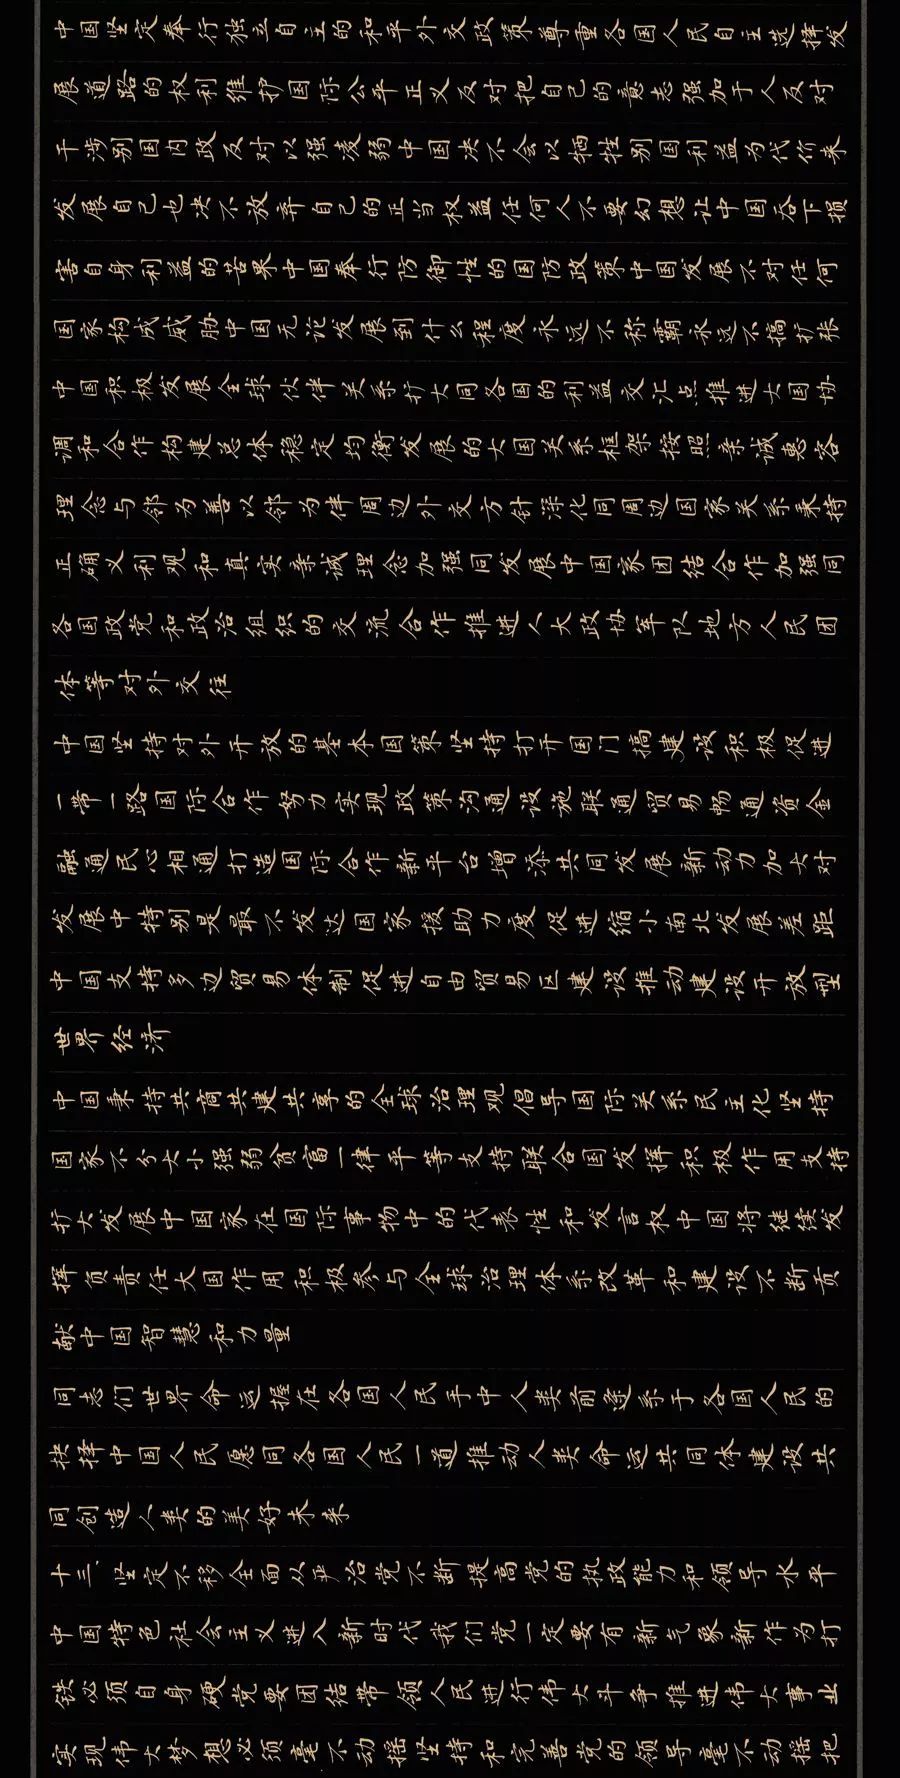 中国坚定奉行独立自主的和平外交政策尊重各国人民自主选择发
展道路的权利维护国际公平正义反对把自己的意志强加于人反对
干涉别国内政反对以强凌弱中国决不会以牺牲别国利益为代价来
发展自己也决不放弃自己的正当权益任何人不要幻想让中国吞下损
害自身利益的苦果中国奉行防御性的国防政策中国发展不对任何
国家构成威胁中国无论发展到什么程度永远不称霸永远不搞扩张
中国积极发展全球伙伴关系扩大同各国的利益交汇点推进大国协
调和合作构建总体稳定均衡发展的大国关系框架按照亲诚惠容
理念与邻为善以邻为伴周边外交方针深化同周边国家关系秉持
正确义利观和真实亲诚理念加强同发展中国家团结合作加强同
各国政党和政治组织的交流合作推进人大政协军队地方人民团
体等对外交往
中国坚持对外开放的基本国策坚持打开国门搞建设积极促进
一带一路国际合作努力实现政策沟通设施联通贸易畅通资金
融通民心相通打造国际合作新平台增添共同发展新动力加大对
发展中特别是最不发达国家援助力度促进缩小南北发展差距
中国支持多边贸易体制促进自由贸易区建设推动建设开放型
世界经济
中国秉持共商共建共享的全球治理观倡导国际关系民主化坚持
国家不分大小强弱贫富一律平等支持联合国发挥积极作用支持
扩大发展中国家在国际事物中的代表性和发言权中国将继续发
挥负责任大国作用积极参与全球治理体系改革和建设不断贡
献中国智慧和力量
同志们世界命运握在各国人民手中人类前途系于各国人民的
抉择中国人民愿同各国人民一道推动人类命运共同体建设共
同创造人类的美好未来
十三、坚定不移全面从严治党不断提高党的执政能力和领导水平
中国特色社会主义进入新时代我们党一定要有新气象新作为打
铁必须自身硬党要团结带领人民进行伟大斗争推进伟大事业
实现伟大梦想必须毫不动摇坚持和完善党的领导毫不动摇把